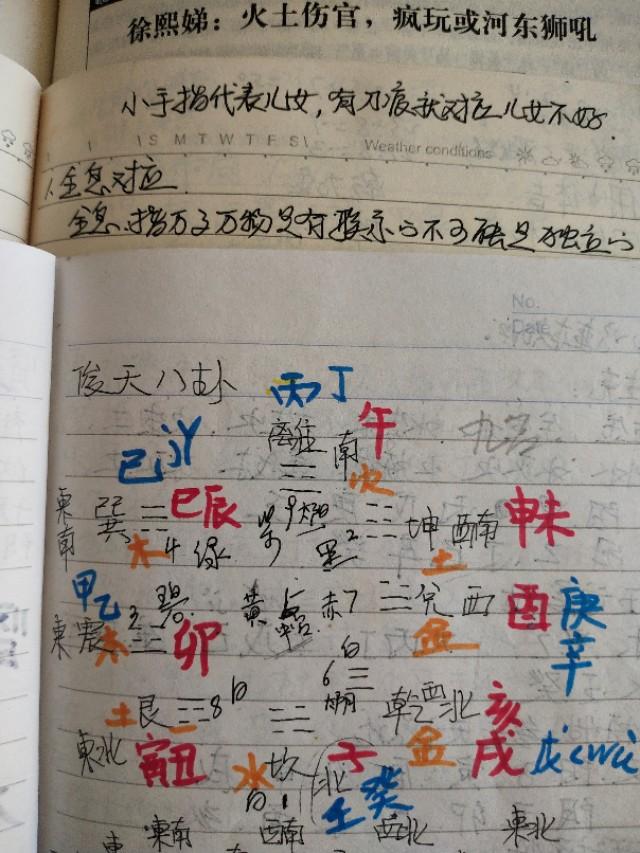 徐熙娣：火土伤官，疯玩或河东狮吼
小手指代表儿女，有刀痕就对应儿女不好.
S M T W T F S Weather conditions
全息对应
全息.指万事万物是有联系的不可能是独立的
No.
Date
后天八卦 丙丁
离 南 午
火
己 巳辰
東南 巽 木 4 绿 紫 9 黑 2 坤 西南 申未
土
甲乙 3 碧 黄 5 赤 7 兑 西 酉 庚
東 震 木 卯 金 辛
白
6 乾 西北 亥
土 艮 8 白 金 戌 戊
東北 寅丑 水 坎 北 子
白 1 壬癸
東南 西南 西北 東北